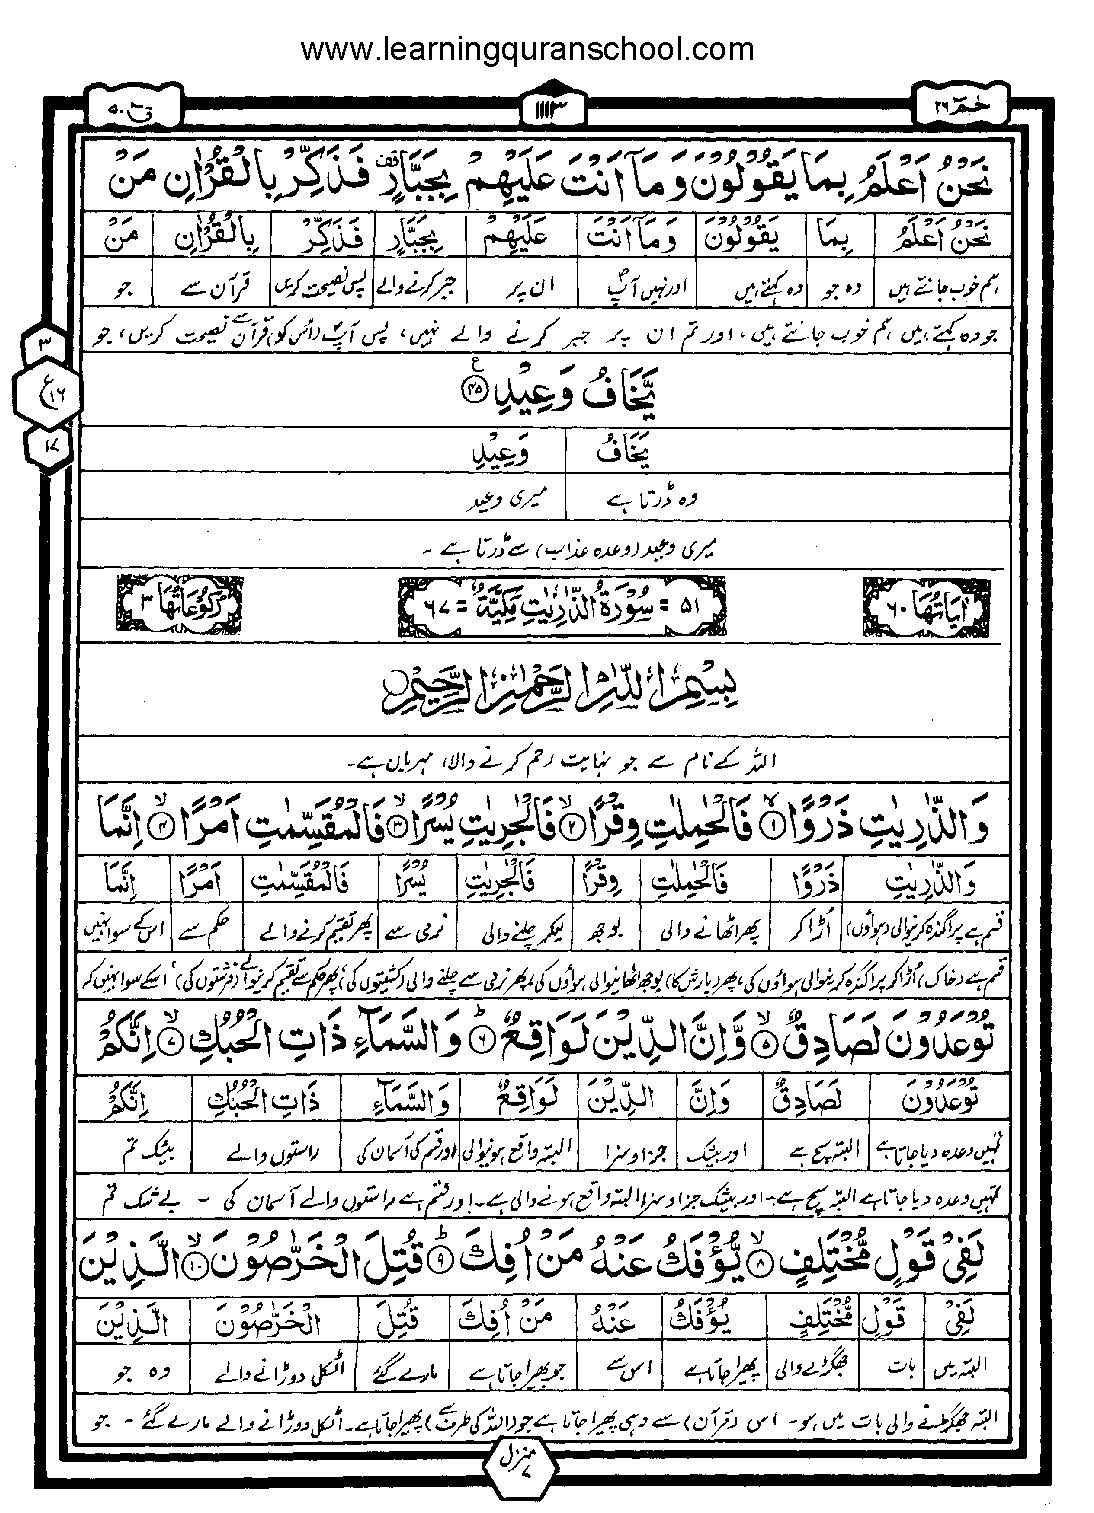 www.learningquranschool.com
حٰمٓ ۲۶
۱۱۱۳
قٓ ۵۰
نَحْنُ اَعْلَمُ بِمَا يَقُوْلُوْنَ وَمَاۤ اَنْتَ عَلَيْهِمْ بِجَبَّارٍ فَذَكِّرْ بِالْقُرْاٰنِ مَنْ
نَحْنُ اَعْلَمُ بِمَا يَقُوْلُوْنَ وَمَاۤ اَنْتَ عَلَيْهِمْ بِجَبَّارٍ فَذَكِّرْ بِالْقُرْاٰنِ مَنْ
ہم خوب جانتے ہیں وہ جو وہ کہتے ہیں اور نہیں آپ ان پر جبر کرنے والے پس نصیحت کریں قرآن سے جو
جو وہ کہتے ہیں ہم خوب جانتے ہیں، اور تم ان پر جبر کرنے والے نہیں، پس آپ (اس کو) قرآن سے نصیحت کریں، جو
۳
ع ۱۶
۱۷
يَّخَافُ وَعِيْدِ ۴۵ ع
يَخَافُ وَعِيْدِ
وہ ڈرتا ہے میری وعید
میری وعید (وعدہ عذاب) سے ڈرتا ہے ۔
اٰيَاتُهَا ۶۰
۵۱ = سُوْرَةُ الذّٰرِيٰتِ مَكِّيَّةٌ = ۶۷
رُكُوْعَاتُهَا ۳
بِسْمِ اللّٰهِ الرَّحْمٰنِ الرَّحِيْمِ
اللہ کے نام سے جو نہایت رحم کرنے والا، مہربان ہے۔
وَالذّٰرِيٰتِ ذَرْوًا ۱ فَالْحٰمِلٰتِ وِقْرًا ۲ فَالْجٰرِيٰتِ يُسْرًا ۳ فَالْمُقَسِّمٰتِ اَمْرًا ۴ اِنَّمَا
وَالذّٰرِيٰتِ ذَرْوًا فَالْحٰمِلٰتِ وِقْرًا فَالْجٰرِيٰتِ يُسْرًا فَالْمُقَسِّمٰتِ اَمْرًا اِنَّمَا
قسم ہے پراگندہ کرنیوالی (ہواؤں) اُڑا کر پھر اٹھانے والی بوجھ پھر چلنے والی نرمی سے پھر تقسیم کرنے والے حکم سے اس کے سوا نہیں
قسم ہے (خاک) اُڑا کر پراگندہ کرنیوالی ہواؤں کی، پھر (بارش کا) بوجھ اٹھانیوالی ہواؤں کی، پھر نرمی سے چلنے والی (کشتیوں کی)، پھر حکم سے تقسیم کرنیوالے (فرشتوں کی)، اسکے سوا نہیں کہ
تُوْعَدُوْنَ لَصَادِقٌ ۵ وَّاِنَّ الدِّيْنَ لَوَاقِعٌ ۶ وَالسَّمَآءِ ذَاتِ الْحُبُكِ ۷ اِنَّكُمْ
تُوْعَدُوْنَ لَصَادِقٌ وَاِنَّ الدِّيْنَ لَوَاقِعٌ وَالسَّمَآءِ ذَاتِ الْحُبُكِ اِنَّكُمْ
تمہیں وعدہ دیا جاتا ہے البتہ سچ ہے اور بیشک جزا و سزا البتہ واقع ہونیوالی اور قسم کی آسمان کی راستوں والے بیشک تم
تمہیں وعدہ دیا جاتا ہے البتہ سچ ہے۔ اور بیشک جزا و سزا البتہ واقع ہونے والی ہے۔ اور قسم ہے راستوں والے آسمان کی ۔ بے شک تم
لَفِيْ قَوْلٍ مُّخْتَلِفٍ ۸ يُّؤْفَكُ عَنْهُ مَنْ اُفِكَ ۹ قُتِلَ الْخَرّٰصُوْنَ ۱۰ الَّذِيْنَ
لَفِيْ قَوْلٍ مُّخْتَلِفٍ يُؤْفَكُ عَنْهُ مَنْ اُفِكَ قُتِلَ الْخَرّٰصُوْنَ الَّذِيْنَ
البتہ میں بات جھگڑے والی پھیرا جاتا ہے اس سے جو پھیرا جاتا ہے مارے گئے اٹکل دوڑانے والے وہ جو
البتہ جھگڑنے والی بات میں ہو۔ اس (قرآن) سے وہی پھیرا جاتا ہے جو (اللہ کی طرف سے) پھیرا جاتا ہے۔ اٹکل دوڑانے والے مارے گئے ۔ جو
منزل ۷